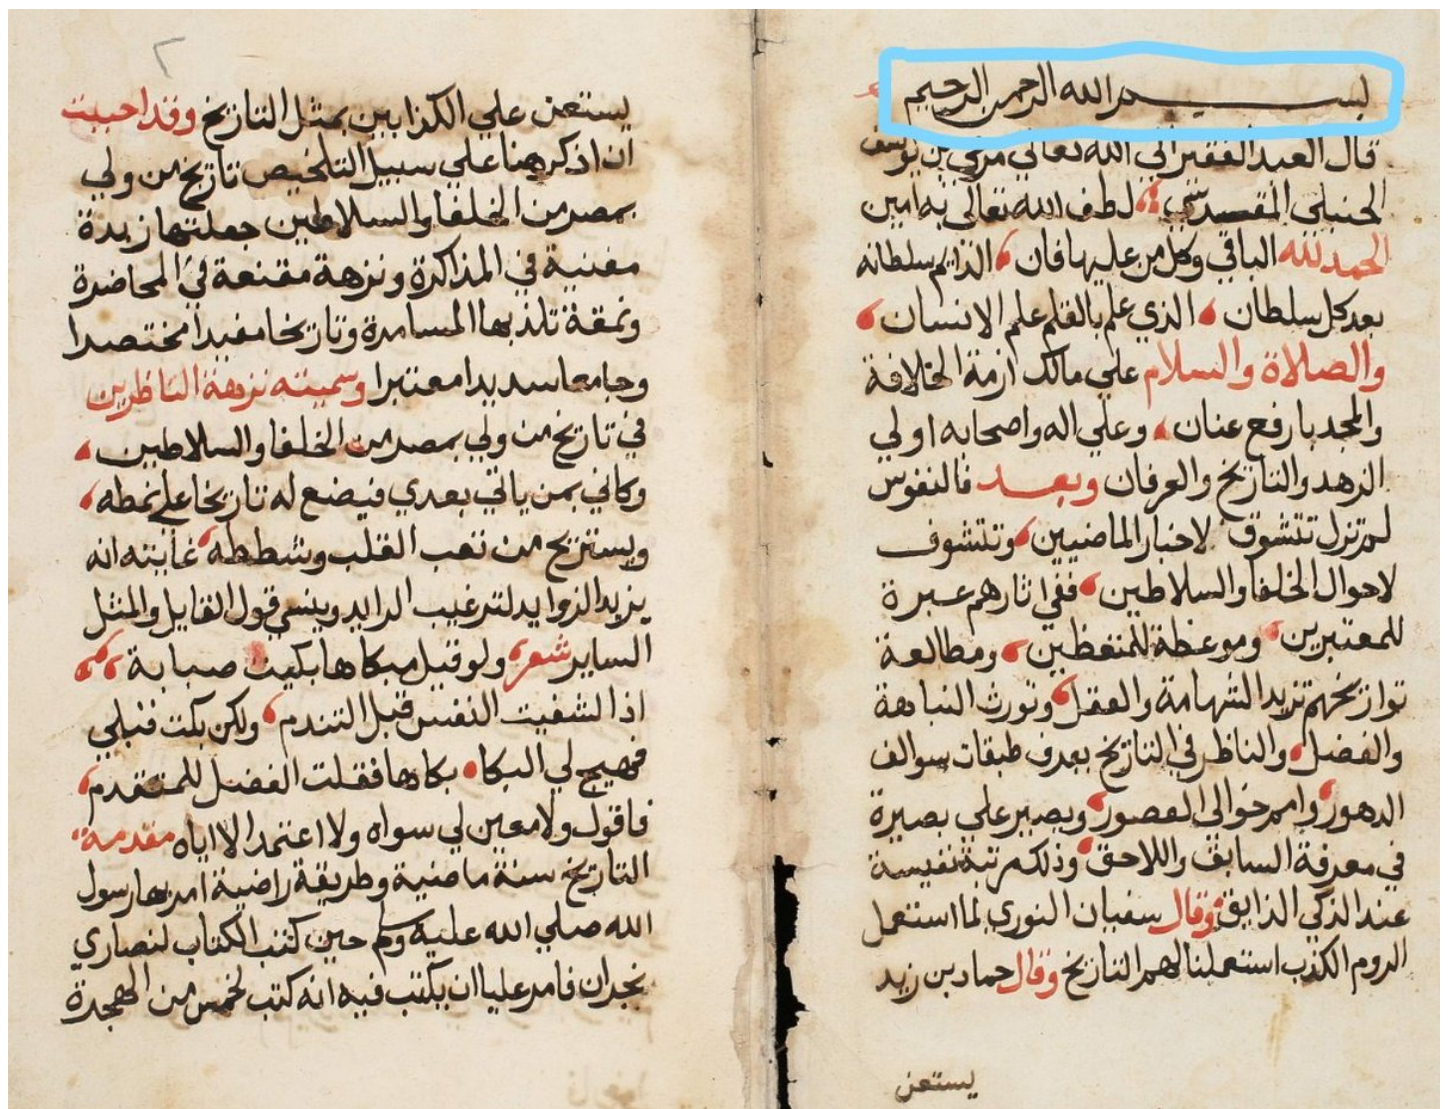 بسم الله الرحمن الرحيم
قال العبد الفقير الي الله تعالي مرعي بن يوسف
الحنبلي المقدسي لطف الله تعالى به امين
الحمد لله الباقي وكل من عليها فان الدايم سلطانه
بعد كل سلطان الذي علم بالقلم علم الانسان
والصلاة والسلام علي مالك ازمة الخلافة
والمجد بارفع عنان وعلي اله واصحابه اولي
الزهد والتاريخ والعرفان وبعد فالنفوس
لم تزل تتشوق لاخبار الماضيين وتتشوف
لاحوال الخلفا والسلاطين ففي اثارهم عبرة
للمعتبرين وموعظة للمتعظين ومطالعة
تواريخهم تزيد الشهامة والعقل وتورث النباهة
والفضل والناظر في التاريخ يعرف طبقات سوالف
الدهور وامم خوالى العصور ويصير علي بصيرة
في معرفة السابق واللاحق وذلك مرتبة نفيسة
عند الذكي الذايق وقال سفيان الثوري لما استعمل
الروم الكذب استعملنا لهم التاريخ وقال حماد بن زيد
يستعن
٢
يستعن علي الكذابين بمثل التاريخ وقد احببت
ان اذكر هنا علي سبيل التلخيص تاريخ من ولي
بمصر من الخلفا والسلاطين جعلتها زبدة
مغنية في المذاكرة ونزهة مقنعة في المحاضرة
ونمقة تلذ بها المسامرة وتاريخا مفيدا مختصرا
وجامعا سديدا معتبرا وسميته نزهة الناظرين
في تاريخ من ولي بمصر من الخلفا والسلاطين
وكاني بمن ياتي بعدي فيضع له تاريخا علي نمطه
ويستريح من تعب القلب وشططه غايته انه
يزيد الزوايد لترغيب الرايد وينسي قول القايل والمثل
الساير شعر ولو قبل مبكاها بكيت صبابة
اذا لشفيت النفس قبل التندم ولكن بكت قبلي
فهيج لي البكا بكاها فقلت الفضل للمتقدم
فاقول ولا معين لي سواه ولا اعتمد الا اياه مقدمة
التاريخ سنة ماضية وطريقة راضية امر بها رسول
الله صلي الله عليه وسلم حين كتب الكتاب لنصاري
نجران فامر عليا ان يكتب فيه انه كتب لخمس من الهجرة